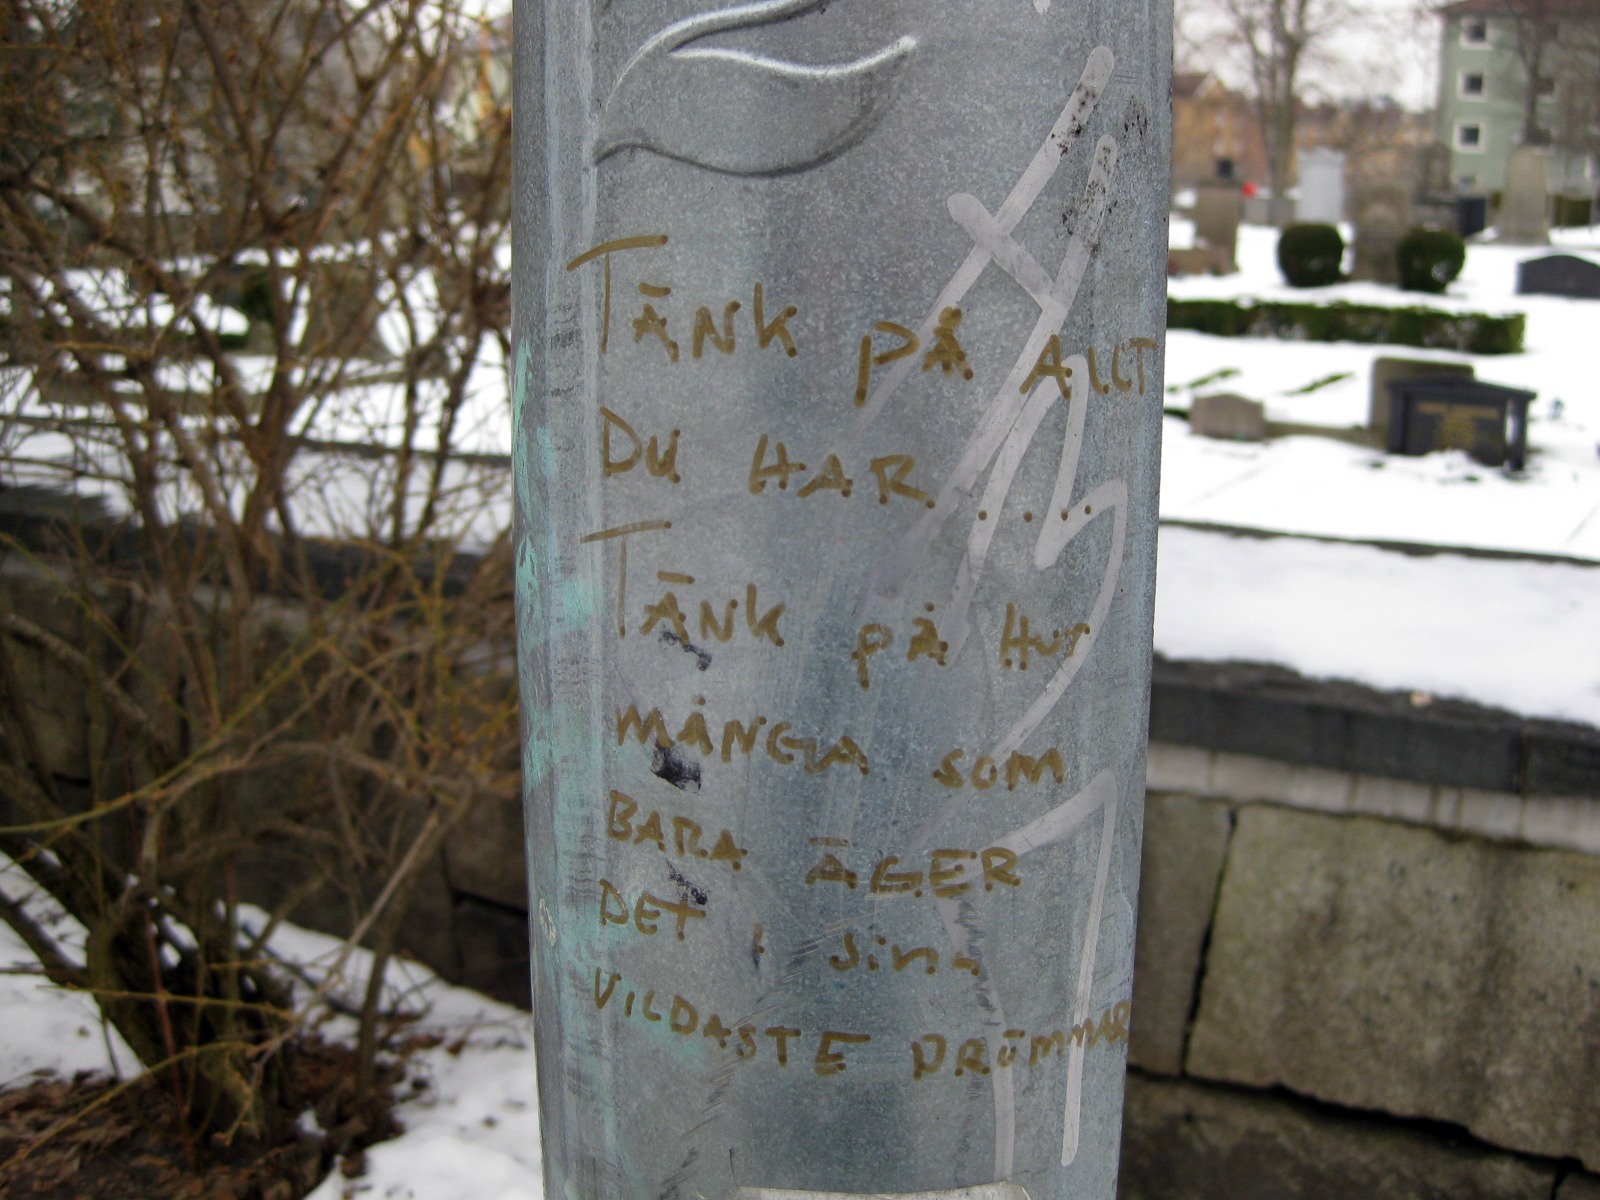 TÄNK PÅ ALLT
DU HAR....
TÄNK PÅ HUR
MÅNGA SOM
BARA ÄGER
DET i sina
VILDASTE DRÖMMAR